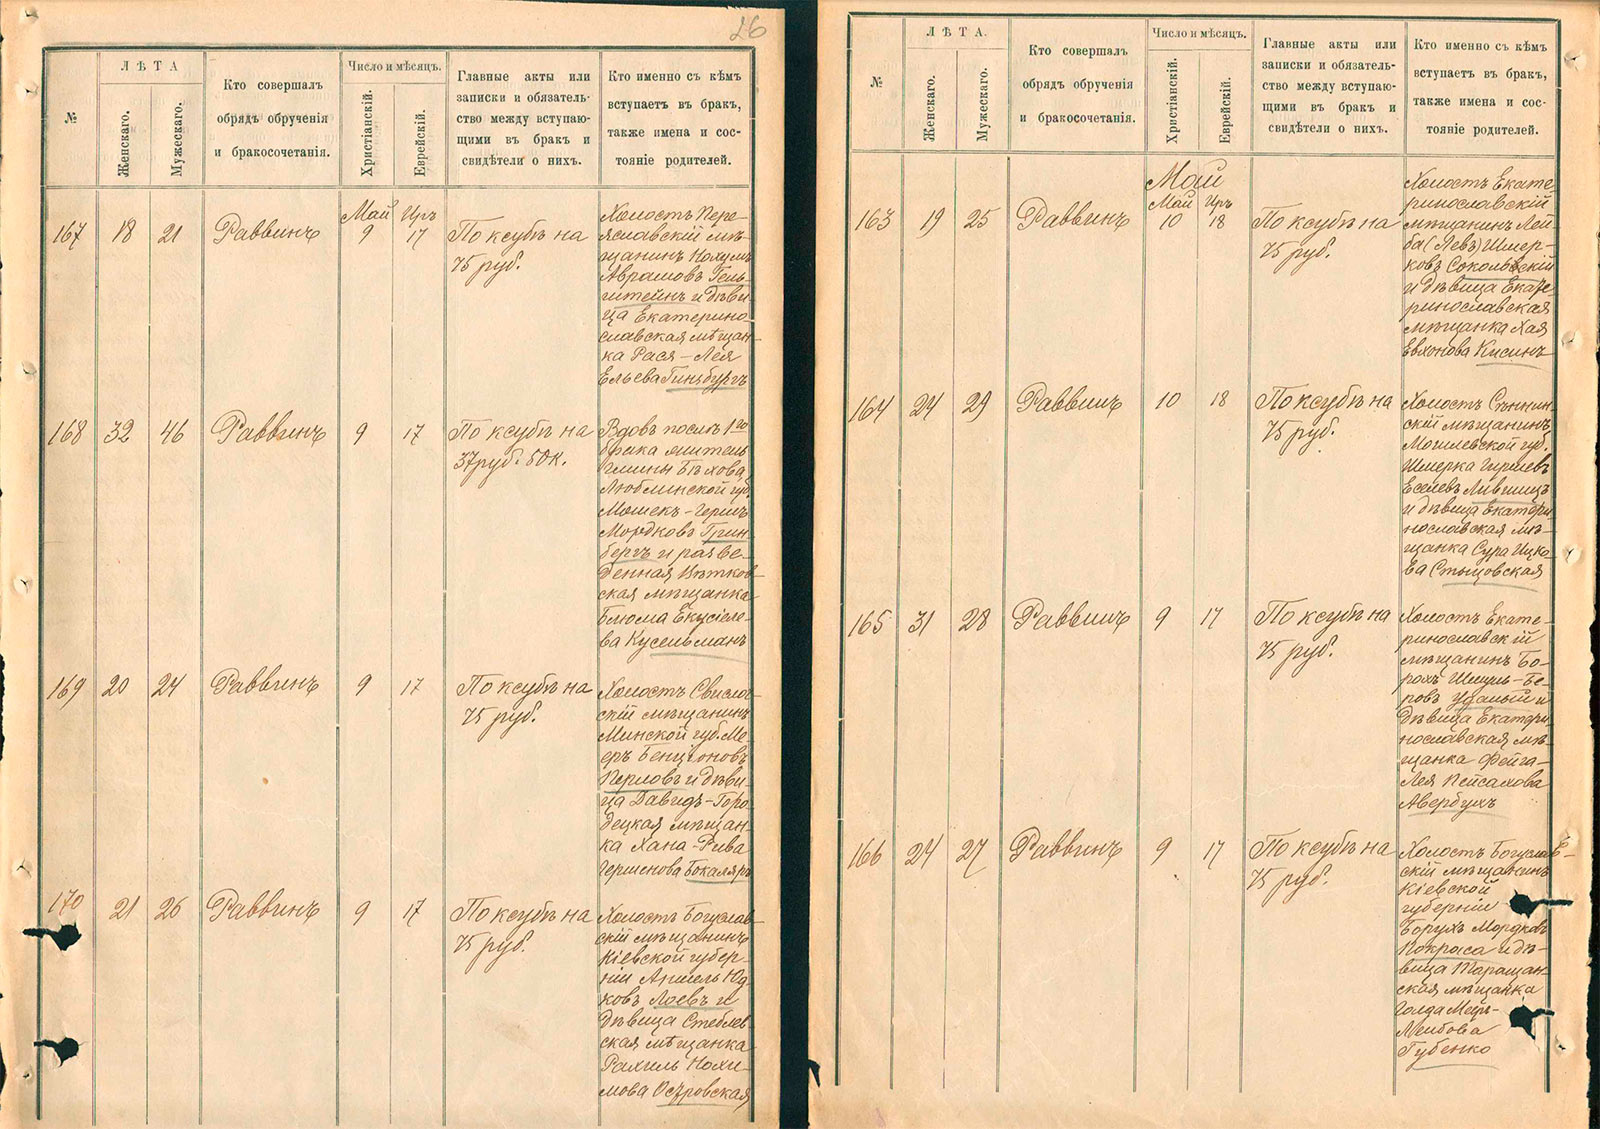 26
№
ЛѢТА
Женскаго.
Мужескаго.
Кто совершалъ
обрядъ обрученія
и бракосочетанія.
Число и мѣсяцъ.
Христіанскій.
Еврейскій.
Главные акты или
записки и обязатель-
ство между вступаю-
щими въ бракъ и
свидѣтели о нихъ.
Кто именно съ кѣмъ
вступаетъ въ бракъ,
также имена и сос-
тояніе родителей.
Май Иръ
167 18 21 Раввинъ 9 17 По ксубѣ на
75 руб.
Холостъ Пере-
яславскій мѣ-
щанинъ Нохумъ
Аврамовъ Гель-
штейнъ и дѣви-
ца Екатерино
славская мѣщан-
ка Рася-Лея
Ельева Гинзбургъ
168 32 46 Раввинъ 9 17 По ксубѣ на
37 руб. 50 к.
Вдовъ послѣ 1го
брака житель
гмины Бѣхова
Люблинской губ.
Мошек-Гершъ
Мордковъ Грин-
бергъ и разве-
денная Вѣтков-
ская мѣщанка
Блюма Екусіеле-
ва Кусельманъ
169 20 24 Раввинъ 9 17 По ксубѣ на
75 руб.
Холостъ Свисло-
скій мѣщанинъ
Минской губ. Ме-
еръ Бенціоновъ
Перловъ и дѣви-
ца Давидъ-Горо-
децкая мѣщан-
ка Хана-Рива
Гершенова Бокаляръ
170 21 26 Раввинъ 9 17 По ксубѣ на
75 руб.
Холостъ Богуслав-
скій мѣщанинъ
Кіевской губер-
ніи Аншель Юд
ковъ Лоевъ и
дѣвица Стеблев-
ская мѣщанка
Рахиль Нохи-
мова Островская
№
ЛѢТА.
Женскаго.
Мужескаго.
Кто совершалъ
обрядъ обрученія
и бракосочетанія.
Число и мѣсяцъ.
Христіанскій.
Еврейскій.
Главные акты или
записки и обязатель-
ство между вступаю-
щими въ бракъ и
свидѣтели о нихъ.
Кто именно съ кѣмъ
вступаетъ въ бракъ,
также имена и сос-
тояніе родителей.
Май
Май Иръ
163 19 25 Раввинъ 10 18 По ксубѣ на
75 руб.
Холостъ Екате-
ринославскій
мѣщанинъ Лей-
ба (Левъ) Шмер-
ковъ Сокольскій
и дѣвица Екате-
ринославская
мѣщанка Хая
Евхонова Кисинъ
164 24 29 Раввинъ 10 18 По ксубѣ на
75 руб.
Холостъ Сѣннин-
скій мѣщанинъ
Могилевской губ.
Шмерка Гиршевъ
Еселевъ Лившицъ
и дѣвица Екатери
нославская мѣ-
щанка Сура Ицко-
ва Стыцовская
165 31 28 Раввинъ 9 17 По ксубѣ на
75 руб.
Холостъ Екате-
ринославскій
мѣщанинъ Бо-
рохъ Шмуль-Бе-
ровъ Удалый и
дѣвица Екатери
нославская мѣ-
щанка Фейга-
Лея Пейсахова
Авербухъ
166 24 27 Раввинъ 9 17 По ксубѣ на
75 руб.
Холостъ Богуслав-
скій мѣщанинъ
Кіевской
губерніи
Борухъ Мордков
Покраса и дѣ-
вица Таращан-
ская мѣщанка
Голда Меиръ-
Лейбова
Губенко